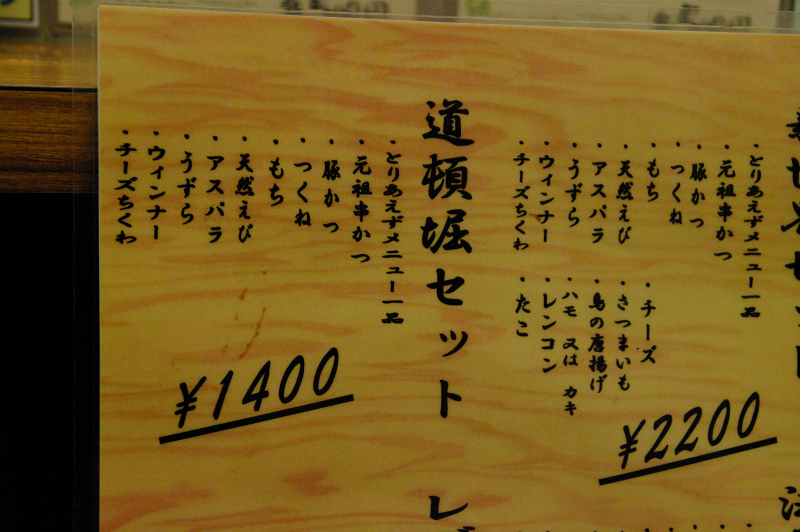 ・とりあえずメニュー一品
・元祖串かつ
・豚かつ
・つくね
・もち
・天然えび
・アスパラ
・うずら
・ウィンナー
・チーズちくわ
・チーズ
・さつまいも
・鳥の唐揚げ
・ハモ 又は カキ
・レンコン
・たこ
¥2200
道頓堀セット
・とりあえずメニュー一品
・元祖串かつ
・豚かつ
・つくね
・もち
・天然えび
・アスパラ
・うずら
・ウィンナー
・チーズちくわ
¥1400